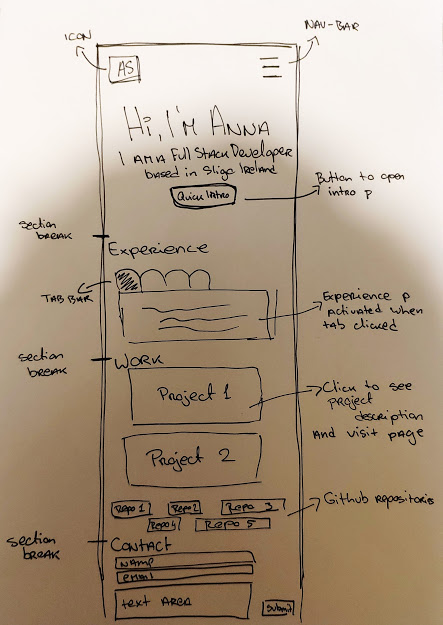 ICON
NAV-BAR
AS
Hi, I'm ANNA
I AM A Full Stack Developer
based in Sligo Ireland
Quick Intro
Button to open
intro p
section
break
Experience
TAB BAR
Experience p
activated when
tab clicked
section
break
WORK
Project 1
Click to see
project
description
and visit page
Project 2
Repo 1
Repo 2
Repo 3
Repo 4
Repo 5
Github repositories
section
break
CONTACT
NAME
EMAIL
text AREA
Submit